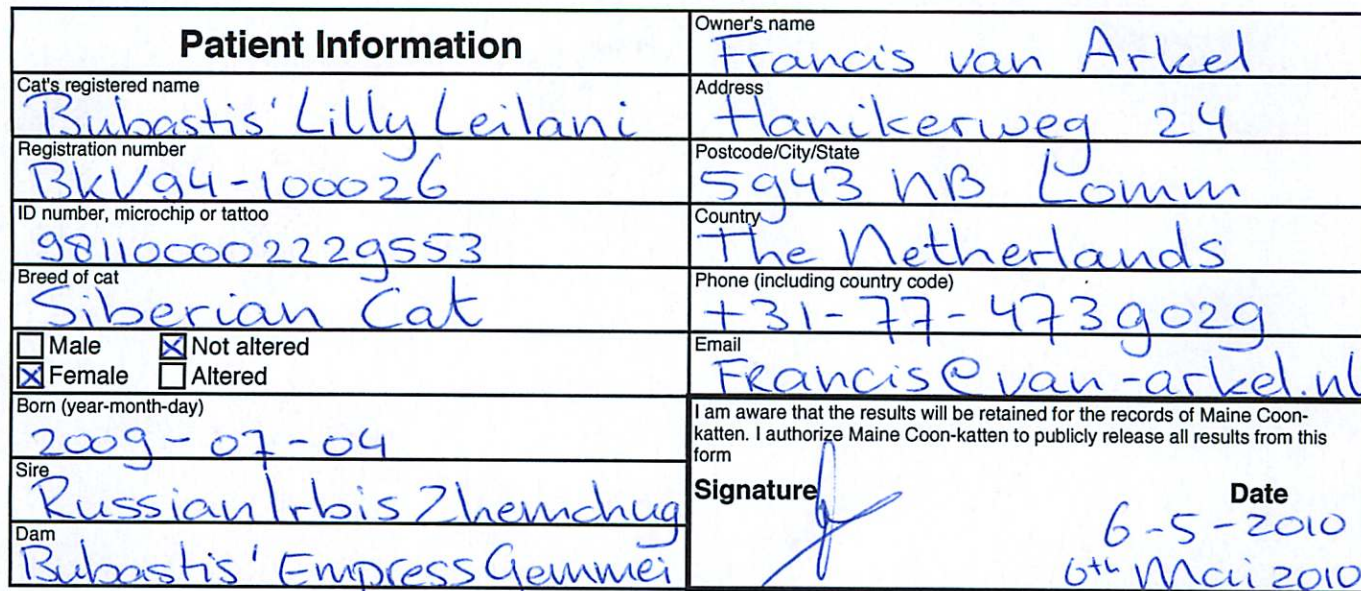 Patient Information
Cat's registered name
Bubastis' Lilly Leilani
Registration number
BKV94-100026
ID number, microchip or tattoo
981100002229553
Breed of cat
Siberian Cat
Male Not altered
Female Altered
Born (year-month-day)
2009-07-04
Sire
Russian Irbis Zhemchug
Dam
Bubastis' Empress Gemmei
Owner's name
Francis van Arkel
Address
Hanikerweg 24
Postcode/City/State
5943 NB Lomm
Country
The Netherlands
Phone (including country code)
+31-77-4739029
Email
Francis@van-arkel.nl
I am aware that the results will be retained for the records of Maine Coon-
katten. I authorize Maine Coon-katten to publicly release all results from this
form
Signature Date
6-5-2010
6th Mai 2010